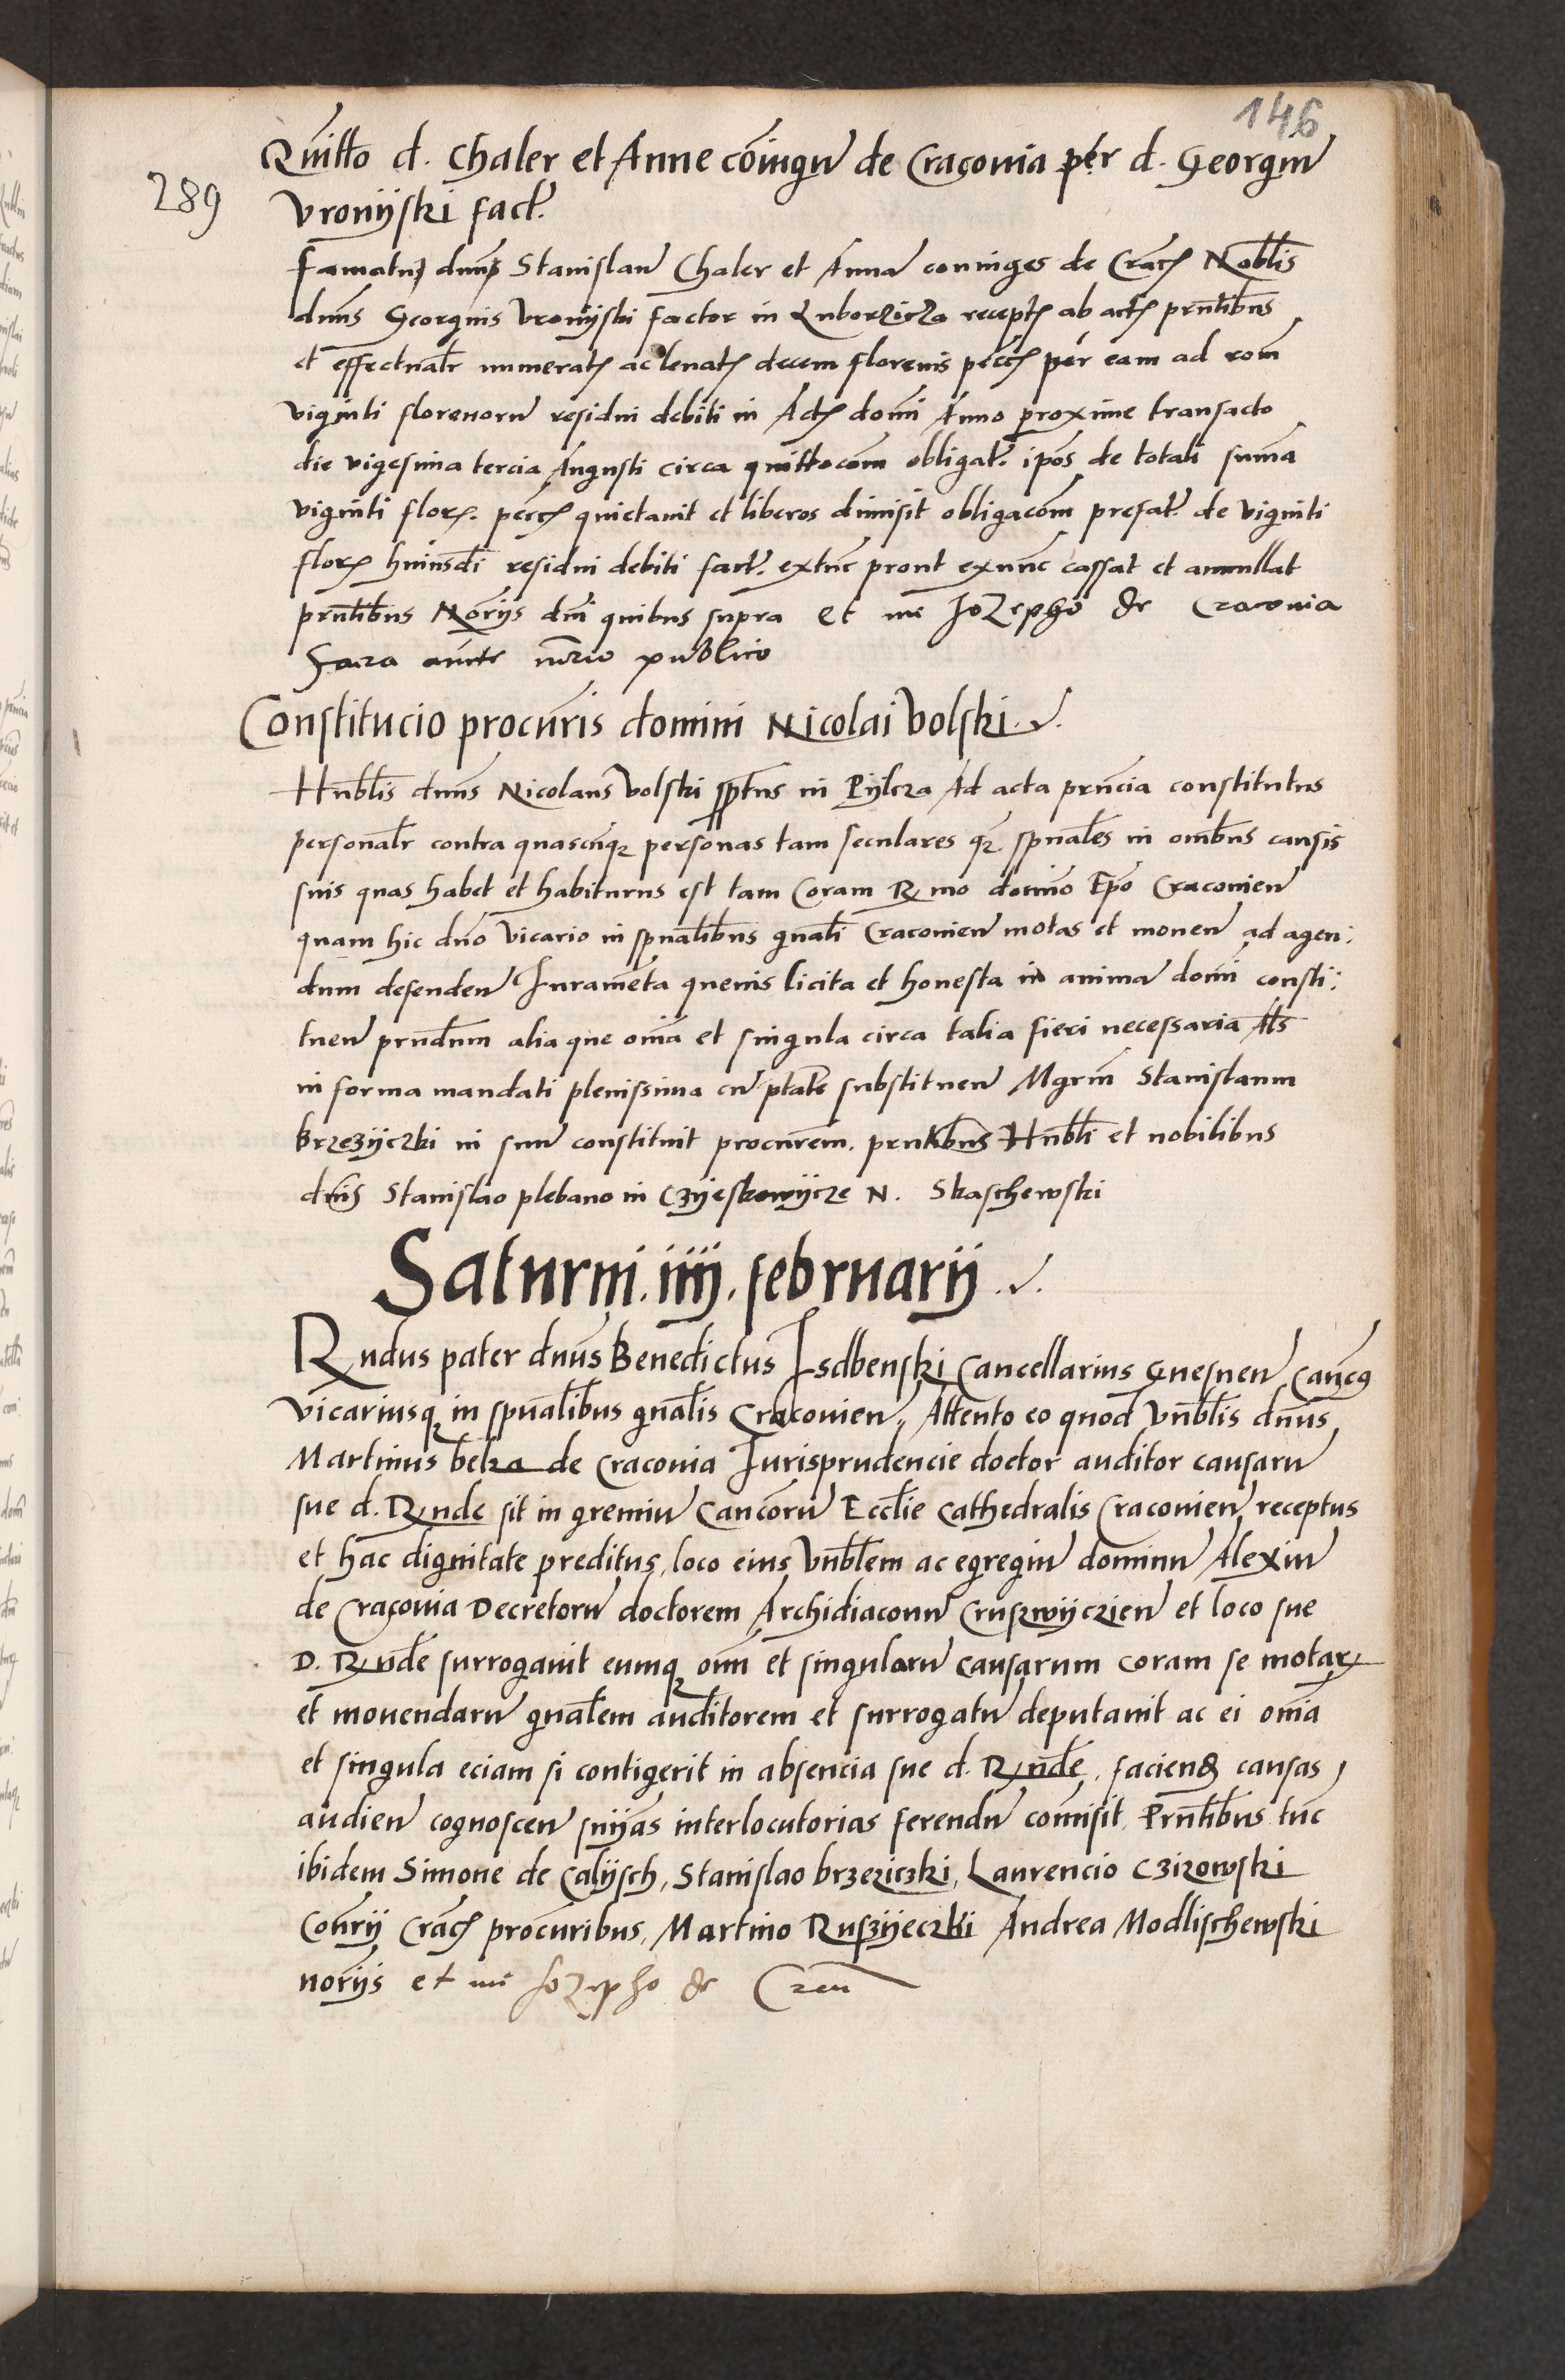 146
Quitto d. Chaler et Anne cōiugū de Cracouia per d. Georgiū
289
Vronijski fact.
Famatus dnūs Stanislaū Chaler et Annā coniuges de Crac. Nobłis
dnūs Georgius Vronijski factor in Luborzicza recept. ab act. prn̄tibus
et effectualr numerat. ac leuat. decem florenis pecc. per eam ad rom̄
viginti florenorū residui debiti in Act. dom̄ Anno proxime transacto
die vigesima tercia Augusti circa quittocōm obligat. ip̄os de totali sum̄a
viginti flor. pecc. quietauit et liberos dimisit obligacōm prefat. de viginti
flor. huiusd̄i residui debiti fact. extūc prout exnūc cassat et annullat
prn̄tibus Nōrijs dn̄i quibus supra et me Jozepho de Cracouia
nōrio publico
Constitucio procūris domini Nicolai Volski
dnūs Nicolaus Volski in Pijlcza Ad acta prn̄cia constitutus
personalr contra quascūq personas tam seculares q̄ spūales in om̄bus causis
suis quas habet et habiturus est tam Coram R mo domīo Ep̄o Cracouien̄
quam hic dn̄o Vicario in spūalibus gn̄ali Cracouien̄ motas et mouen̄ ad agen:
dum defenden̄ Iuramēta queuis licita et honesta in animā dom̄ consti:
tuen̄ prn̄dum alia que om̄ia et singula circa talia fieri necessaria Als
in forma mandati plenissima cū ptate substituen̄ Mgrm̄ Stanislaum
Brzezijczki in suū constituit procūrem. prn̄tibus et nobilibus
dn̄is Stanislao plebano in Czijeskowijcze N. Skaschewski
Saturni. iiij. februarij
Rndus pater dnūs Benedictus Isdbenski Cancellarius Gnesnen̄ Canc̄9
Vicariusq in spūalibus gn̄alis Cracouien̄, Attento eo quod Vn̄blis dnūs
Martinus belza de Cracouia Iurisprudencie doctor auditor causarū
sue d. Rnde sit in gremiū Cancorū Eccłie Cathedralis Cracouien̄ receptus
et hac dignitate preditus, loco eius Vn̄blem ac egregiū dominū Alexiū
de Cracouia Decretorū doctorem Archidiaconū Cruszwijczien̄ et loco sue
D. Rn̄de surrogauit eumq om̄ et singularū causarum coram se motar.
et mouendarū gn̄alem auditorem et surrogatū deputauit ac ei om̄ia
et singula eciam si contigerit in absencia sue d. Rn̄de, faciend. causas
audien̄ cognoscen̄ snijas interlocutorias ferendū com̄isit, Prn̄tibus tūc
ibidem Simone de Calijsch, Stanislao brzeziczki, Laurencio Czizowski
Con̄rij Crac. procūribus, Martino Ruszijeczki Andrea Modlischewski
nōrijs et me Jozepho de Crac̄